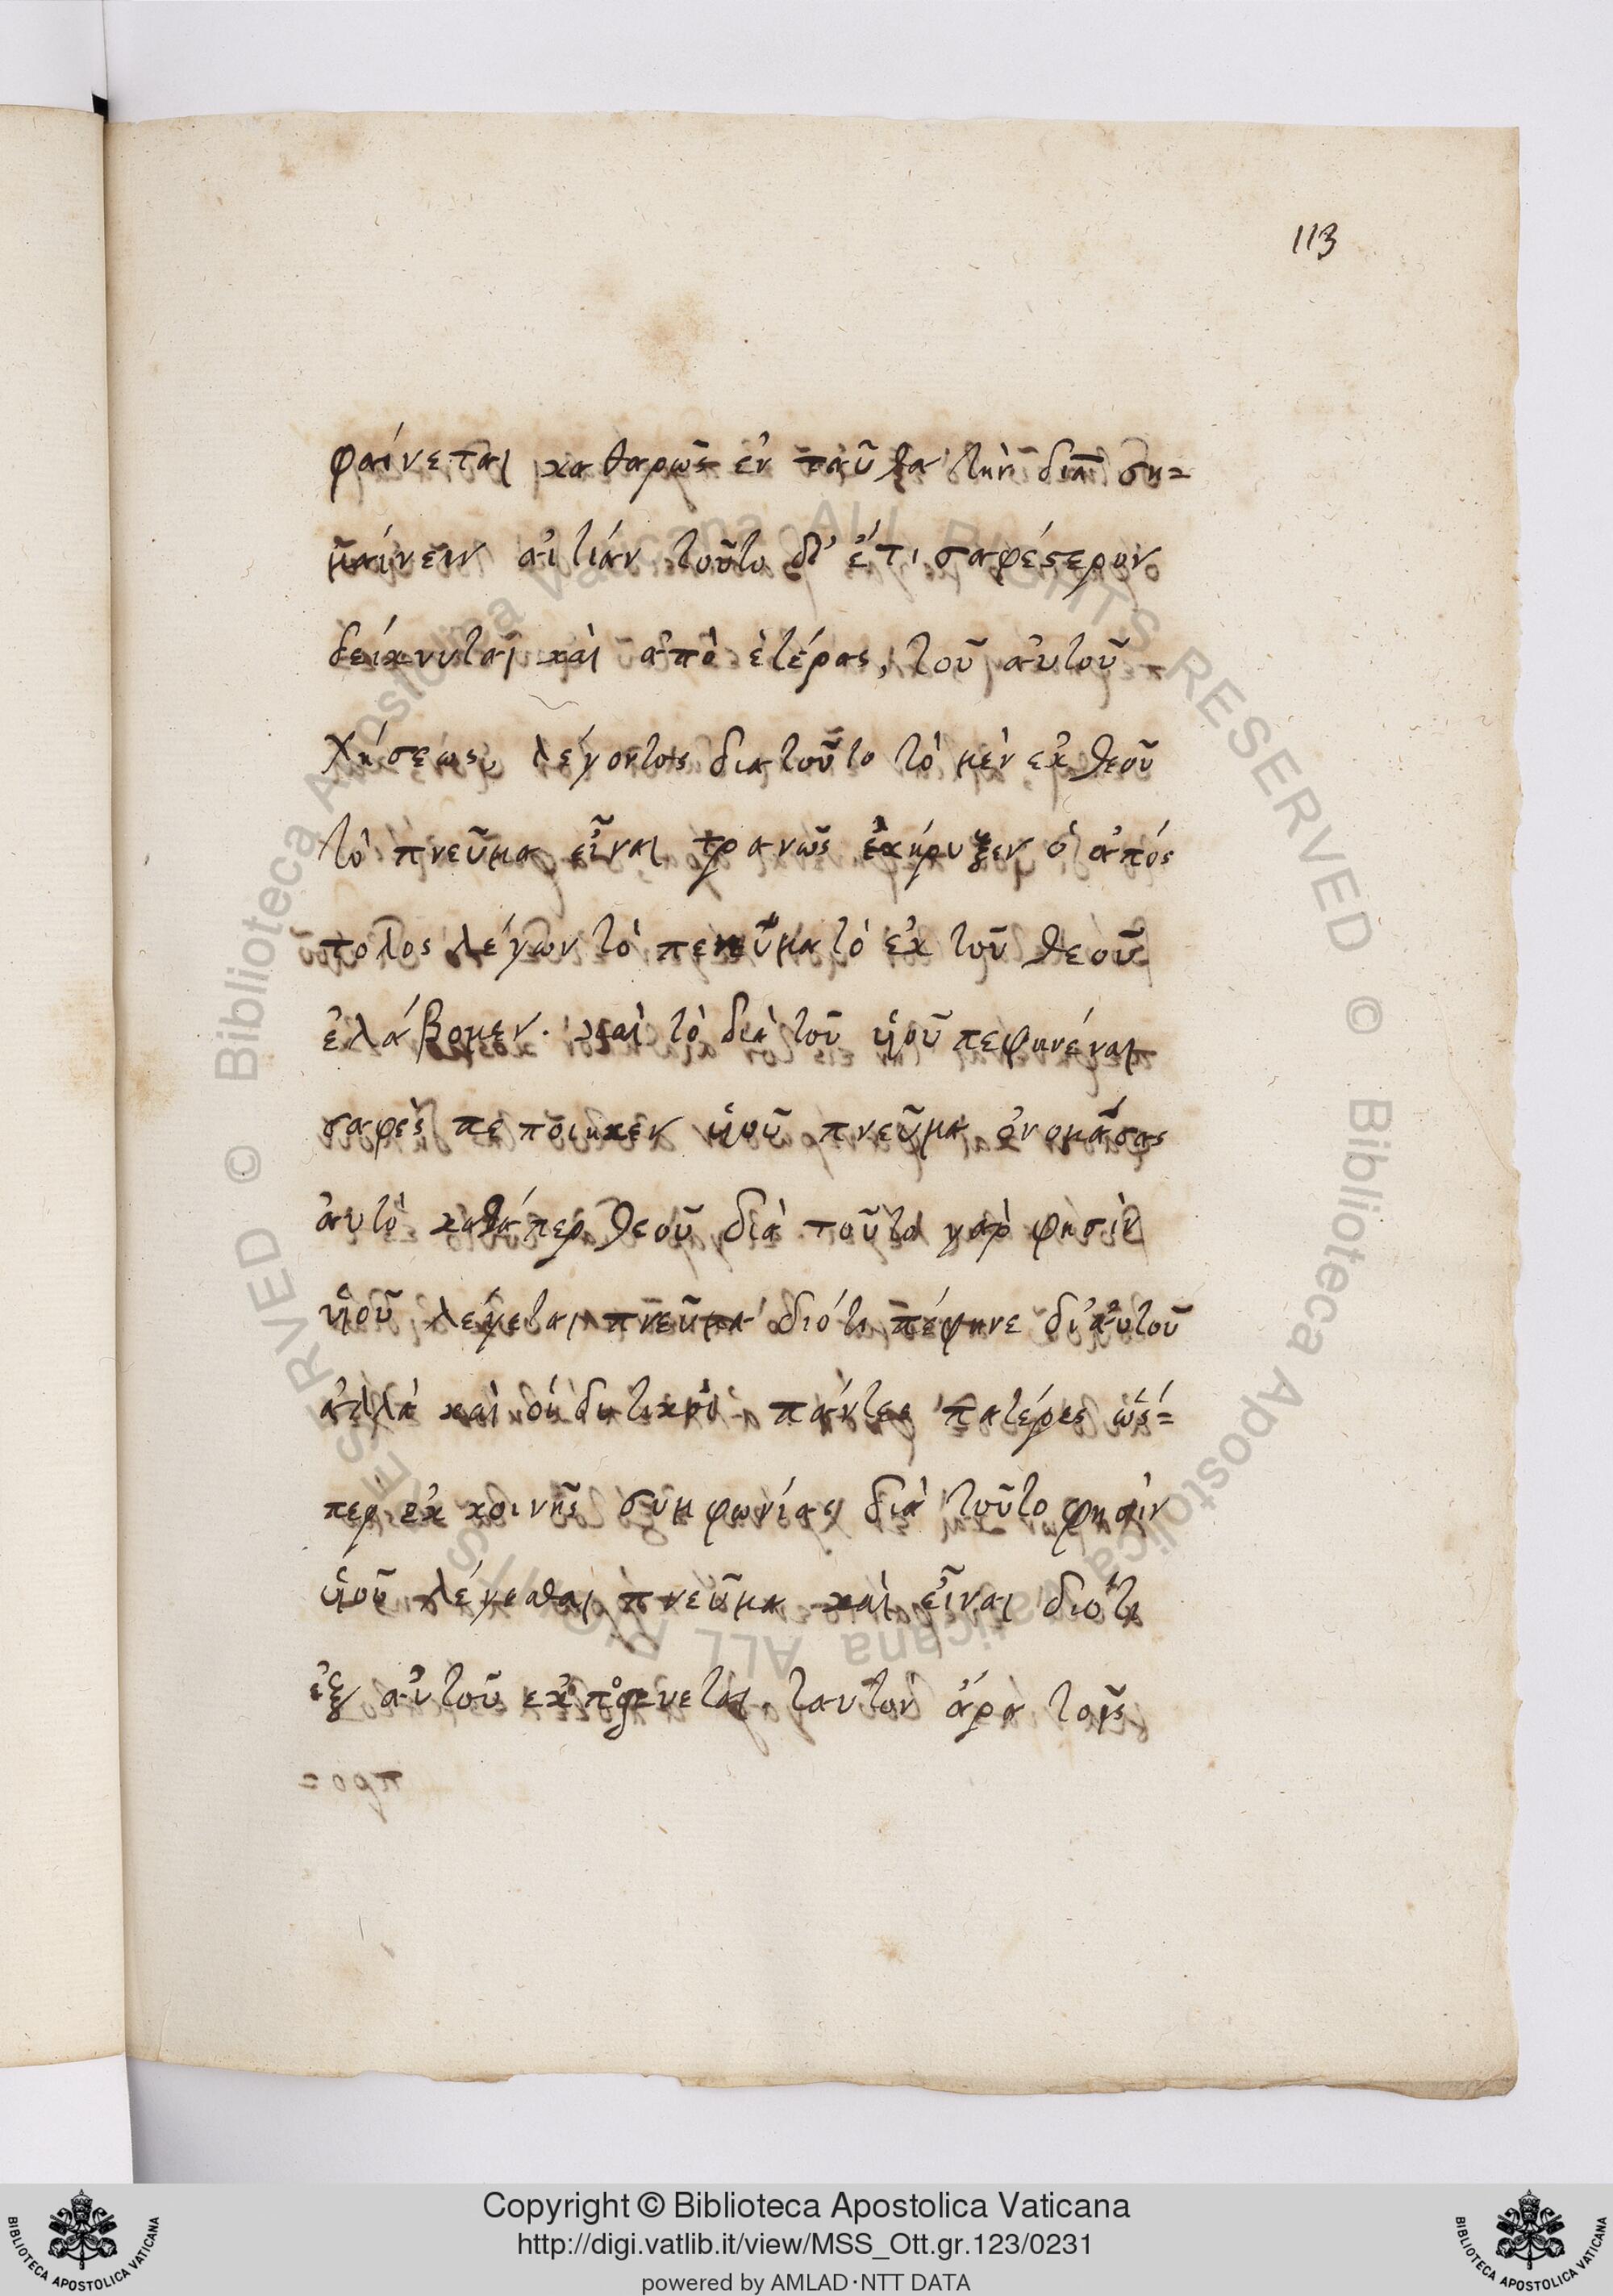 113
φαίνεται καθαρῶς ἐν ταῦθα τὴν διὰ ση=
μαίνειν αἰτιάν τοῦτο δ' ἔτι σαφέστερον
δείκνυται καὶ ἀπὸ ἑτέρας, τοῦ αὐτοῦ
χήσεως, λέγοντος διατοῦτο τὸ μὲν ἐκ θεοῦ
τὸ πνεῦμα εἶναι τρανῶς ἐκήρυξεν ὁ ἀπός
τολος λέγων τὸ πενεῦμα τὸ ἐκ τοῦ θεοῦ
ἐλάβομεν. καὶ τὸ διὰ τοῦ ὑιοῦ πεφηνέναι
σαφὲς πεποιηκεν ὑιοῦ πνεῦμα ὀνομάσας
ἀυτὸ καθάπερ θεοῦ διὰ τοῦτο γαρ φησὶν
ὑιοῦ λέγεται πνεῦμα διότι πέφηνε δι' αὐτοῦ
ἀλλὰ καὶ οἱ δυτικοὶ πάντες πατέρες ὥς=
περ ἐκ κοινῆς συμφωνίας διὰ τοῦτο φησὶν
ὑιοῦ λέγεσθαι πνεῦμα καὶ εἶναι διότι
ἐξ αὐτοῦ ἐκπορευεται. ταυτὸν ἄρα τοῖς
Copyright © Biblioteca Apostolica Vaticana
http://digi.vatlib.it/view/MSS_Ott.gr.123/0231
powered by AMLAD·NTT DATA
BIBLIOTECA APOSTOLICA VATICANA
BIBLIOTECA APOSTOLICA VATICANA
© Biblioteca Apostolica Vaticana ALL RIGHTS RESERVED © Biblioteca Apostolica Vaticana ALL RIGHTS RESERVED